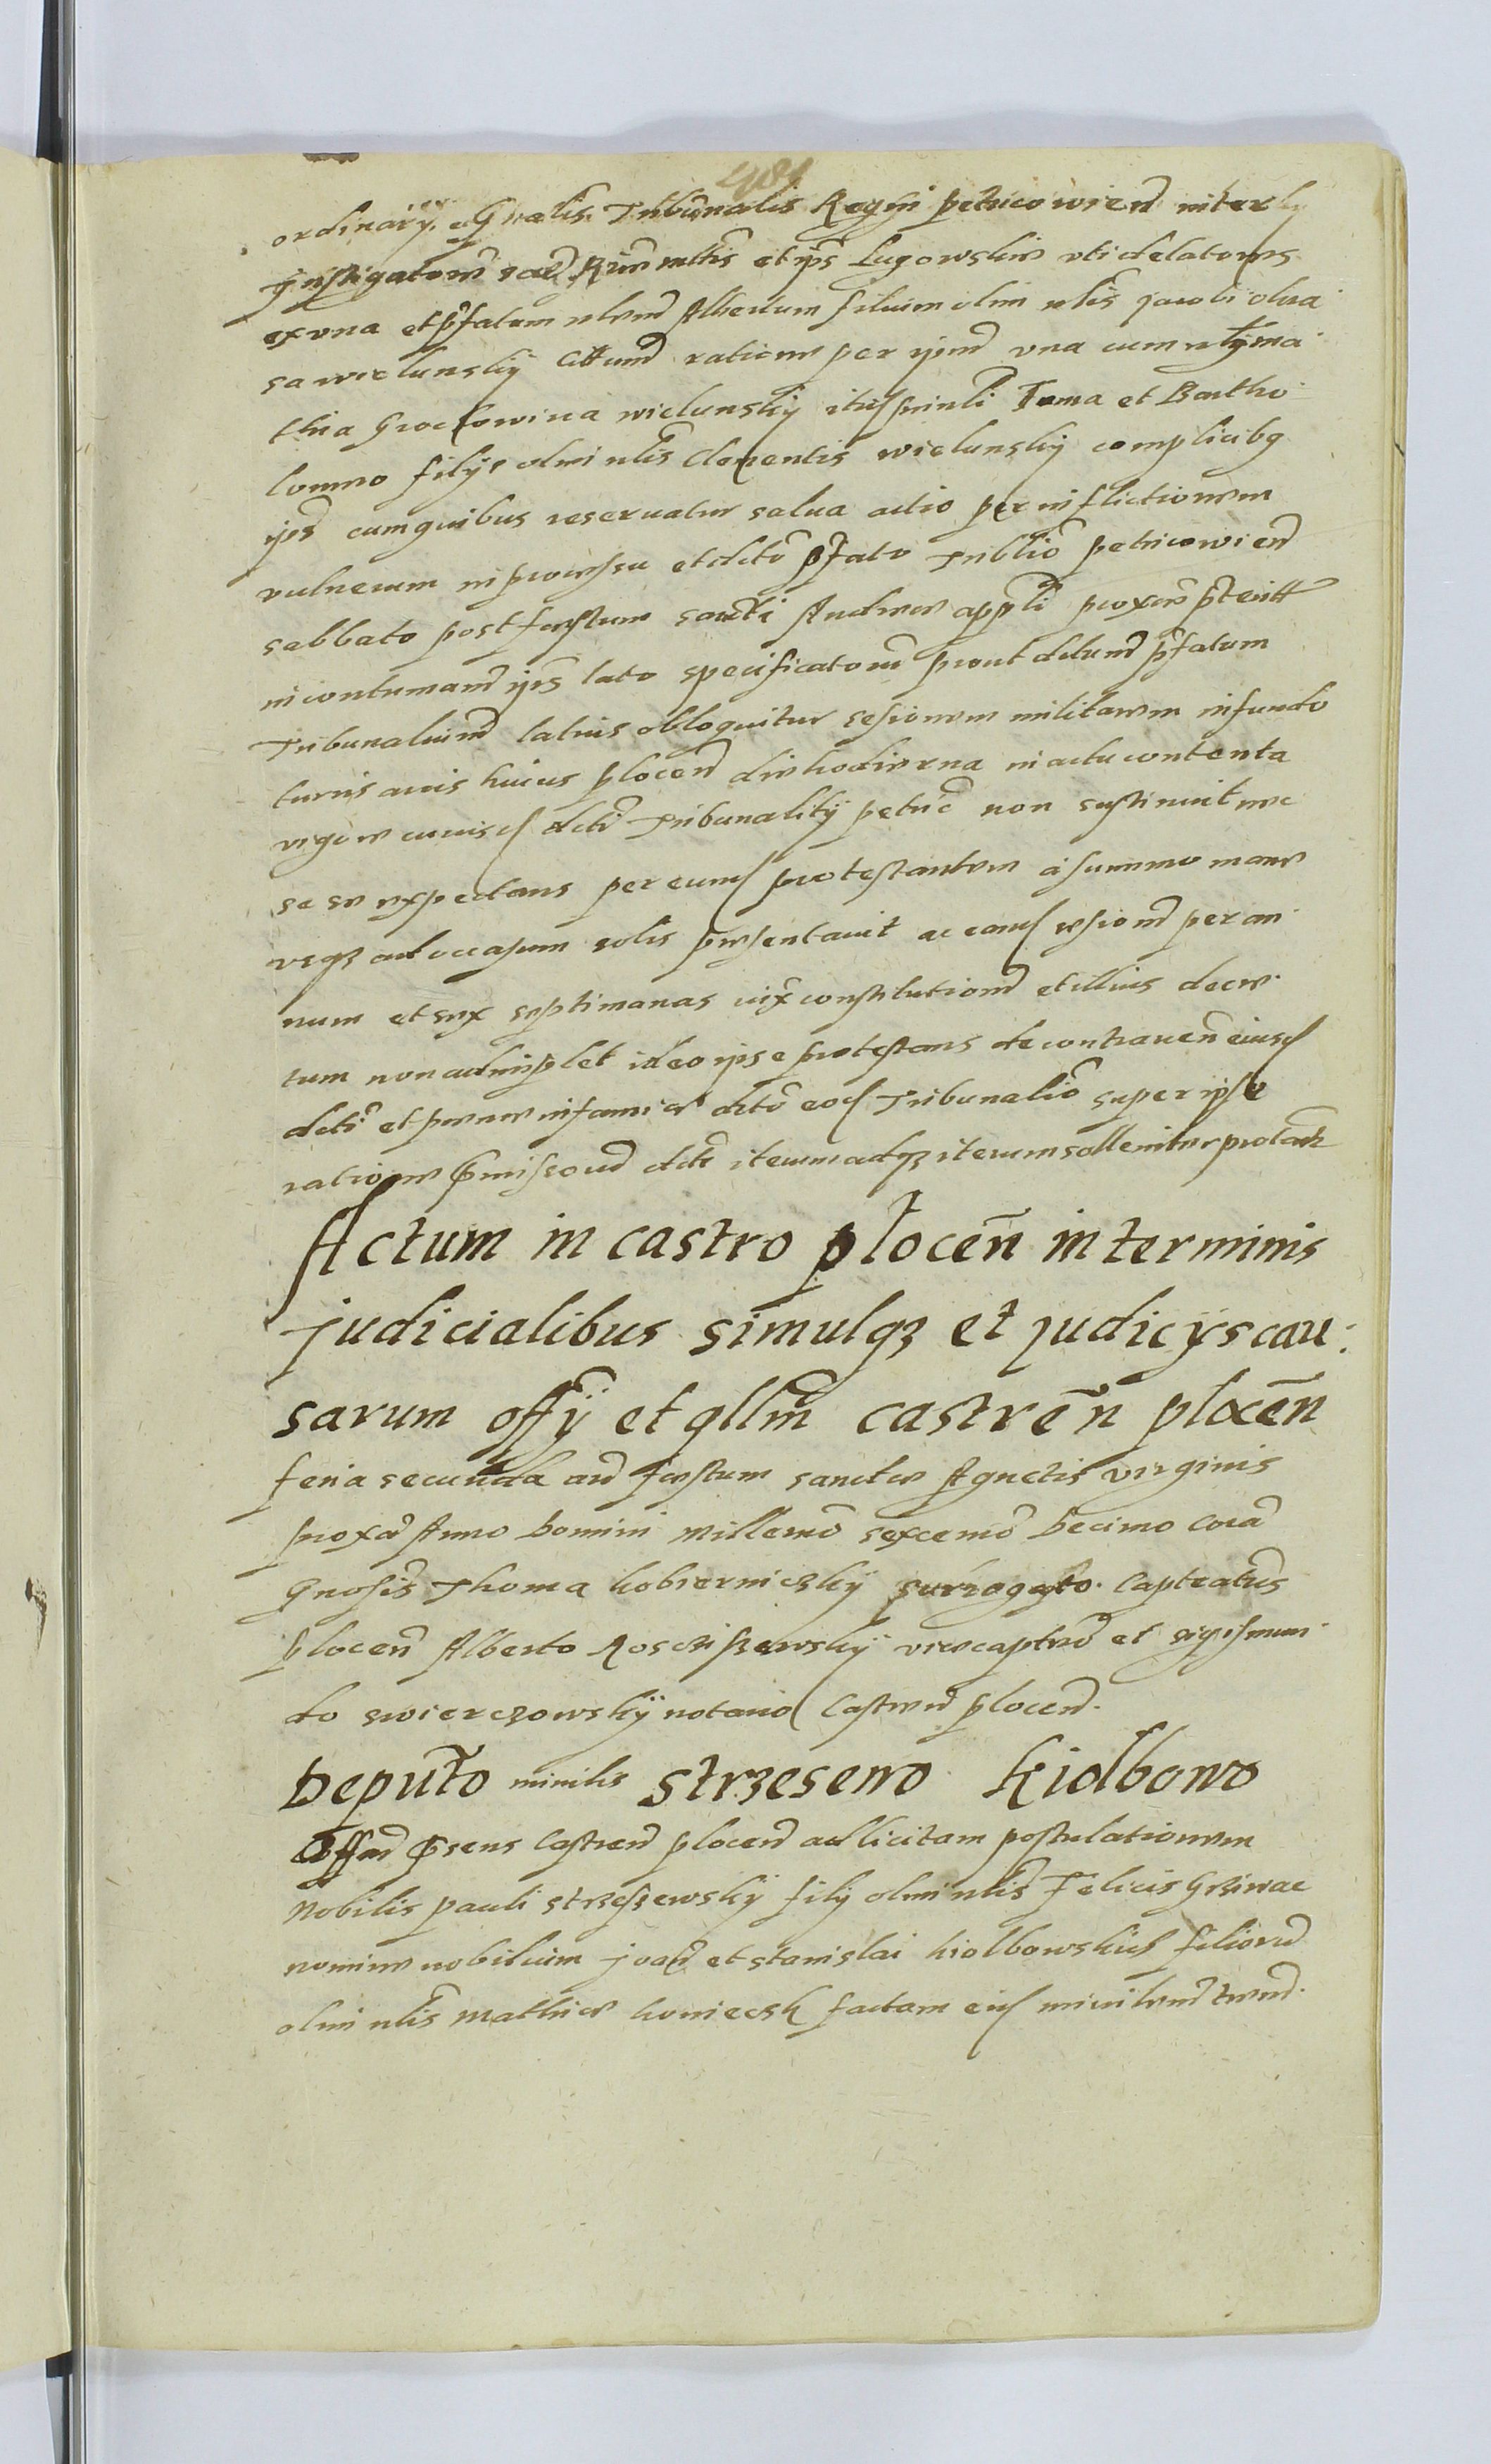 401
ordinarÿ Gnalis Tribunalis Regni petricowien inter
Instigatorem et ips Lugowskie uti delatores
ex una et pfatum Albertum filium olim nlis Jacobi oliva
sa wielunskÿ Cttum ratione per ipm una cum nlÿ ma
thia Grochowina wielunskÿ itiusm nli Toma et Bartho
lomeo filÿs olim nlis Clementis wielunskÿ complicibg
ips cum quibus reservatur salva actio per inflictionem
vulnerum in processu et dcto pfato Triblio petricowien
sabbato post festum sancti Andree appli proxime pteritt
in contumam ips lato specificatorum prout dctum pfatum
Tribunalium latius obloquitur sesionem militarem in fundo
turris arcis huius plocen die hodierna in actu contenta
vigore cuiusd dcti Tribunalitÿ petric non sustinuit nec
se se expectans per eund protestantem a summo mane
usqz ad occasum solis presentavit ac eand sesionem per an
num et sex septimanas iux constitutionem et illius decre
tum non adimplet ideo ipse protestans de contraven eiusd
dcti et pene infamie dcto eod Tribunalio super ipso
ratione pmissorum dcti iterum adqz iterum sollenniter protatr
Actum in castro plocen in terminis
judicialibus simulqz et judicÿs cau:
sarum offÿ et qllm castren plocen
feria secunda an festum sancte Agnetis virginis
proxa Anno Domini Millemo sexcemo Decimo Cora
Gnosis Thoma kobiernickÿ surrogato. Capteatus
plocen Alberto Rosciszewskÿ vicecaptneo et sigismun
do swierczowskÿ notario Castren plocen.
Deputo minilis strzesewo kiolbowo
Offm psens Castren plocen ad licitam postulationem
Nobilis pauli strzeszewskÿ filÿ olim nlis Felicis Grziwac
nomine nobilium joan et stanislai kiolbowskich filiorum
olim nlis mathie koniecsk factam eid minilem